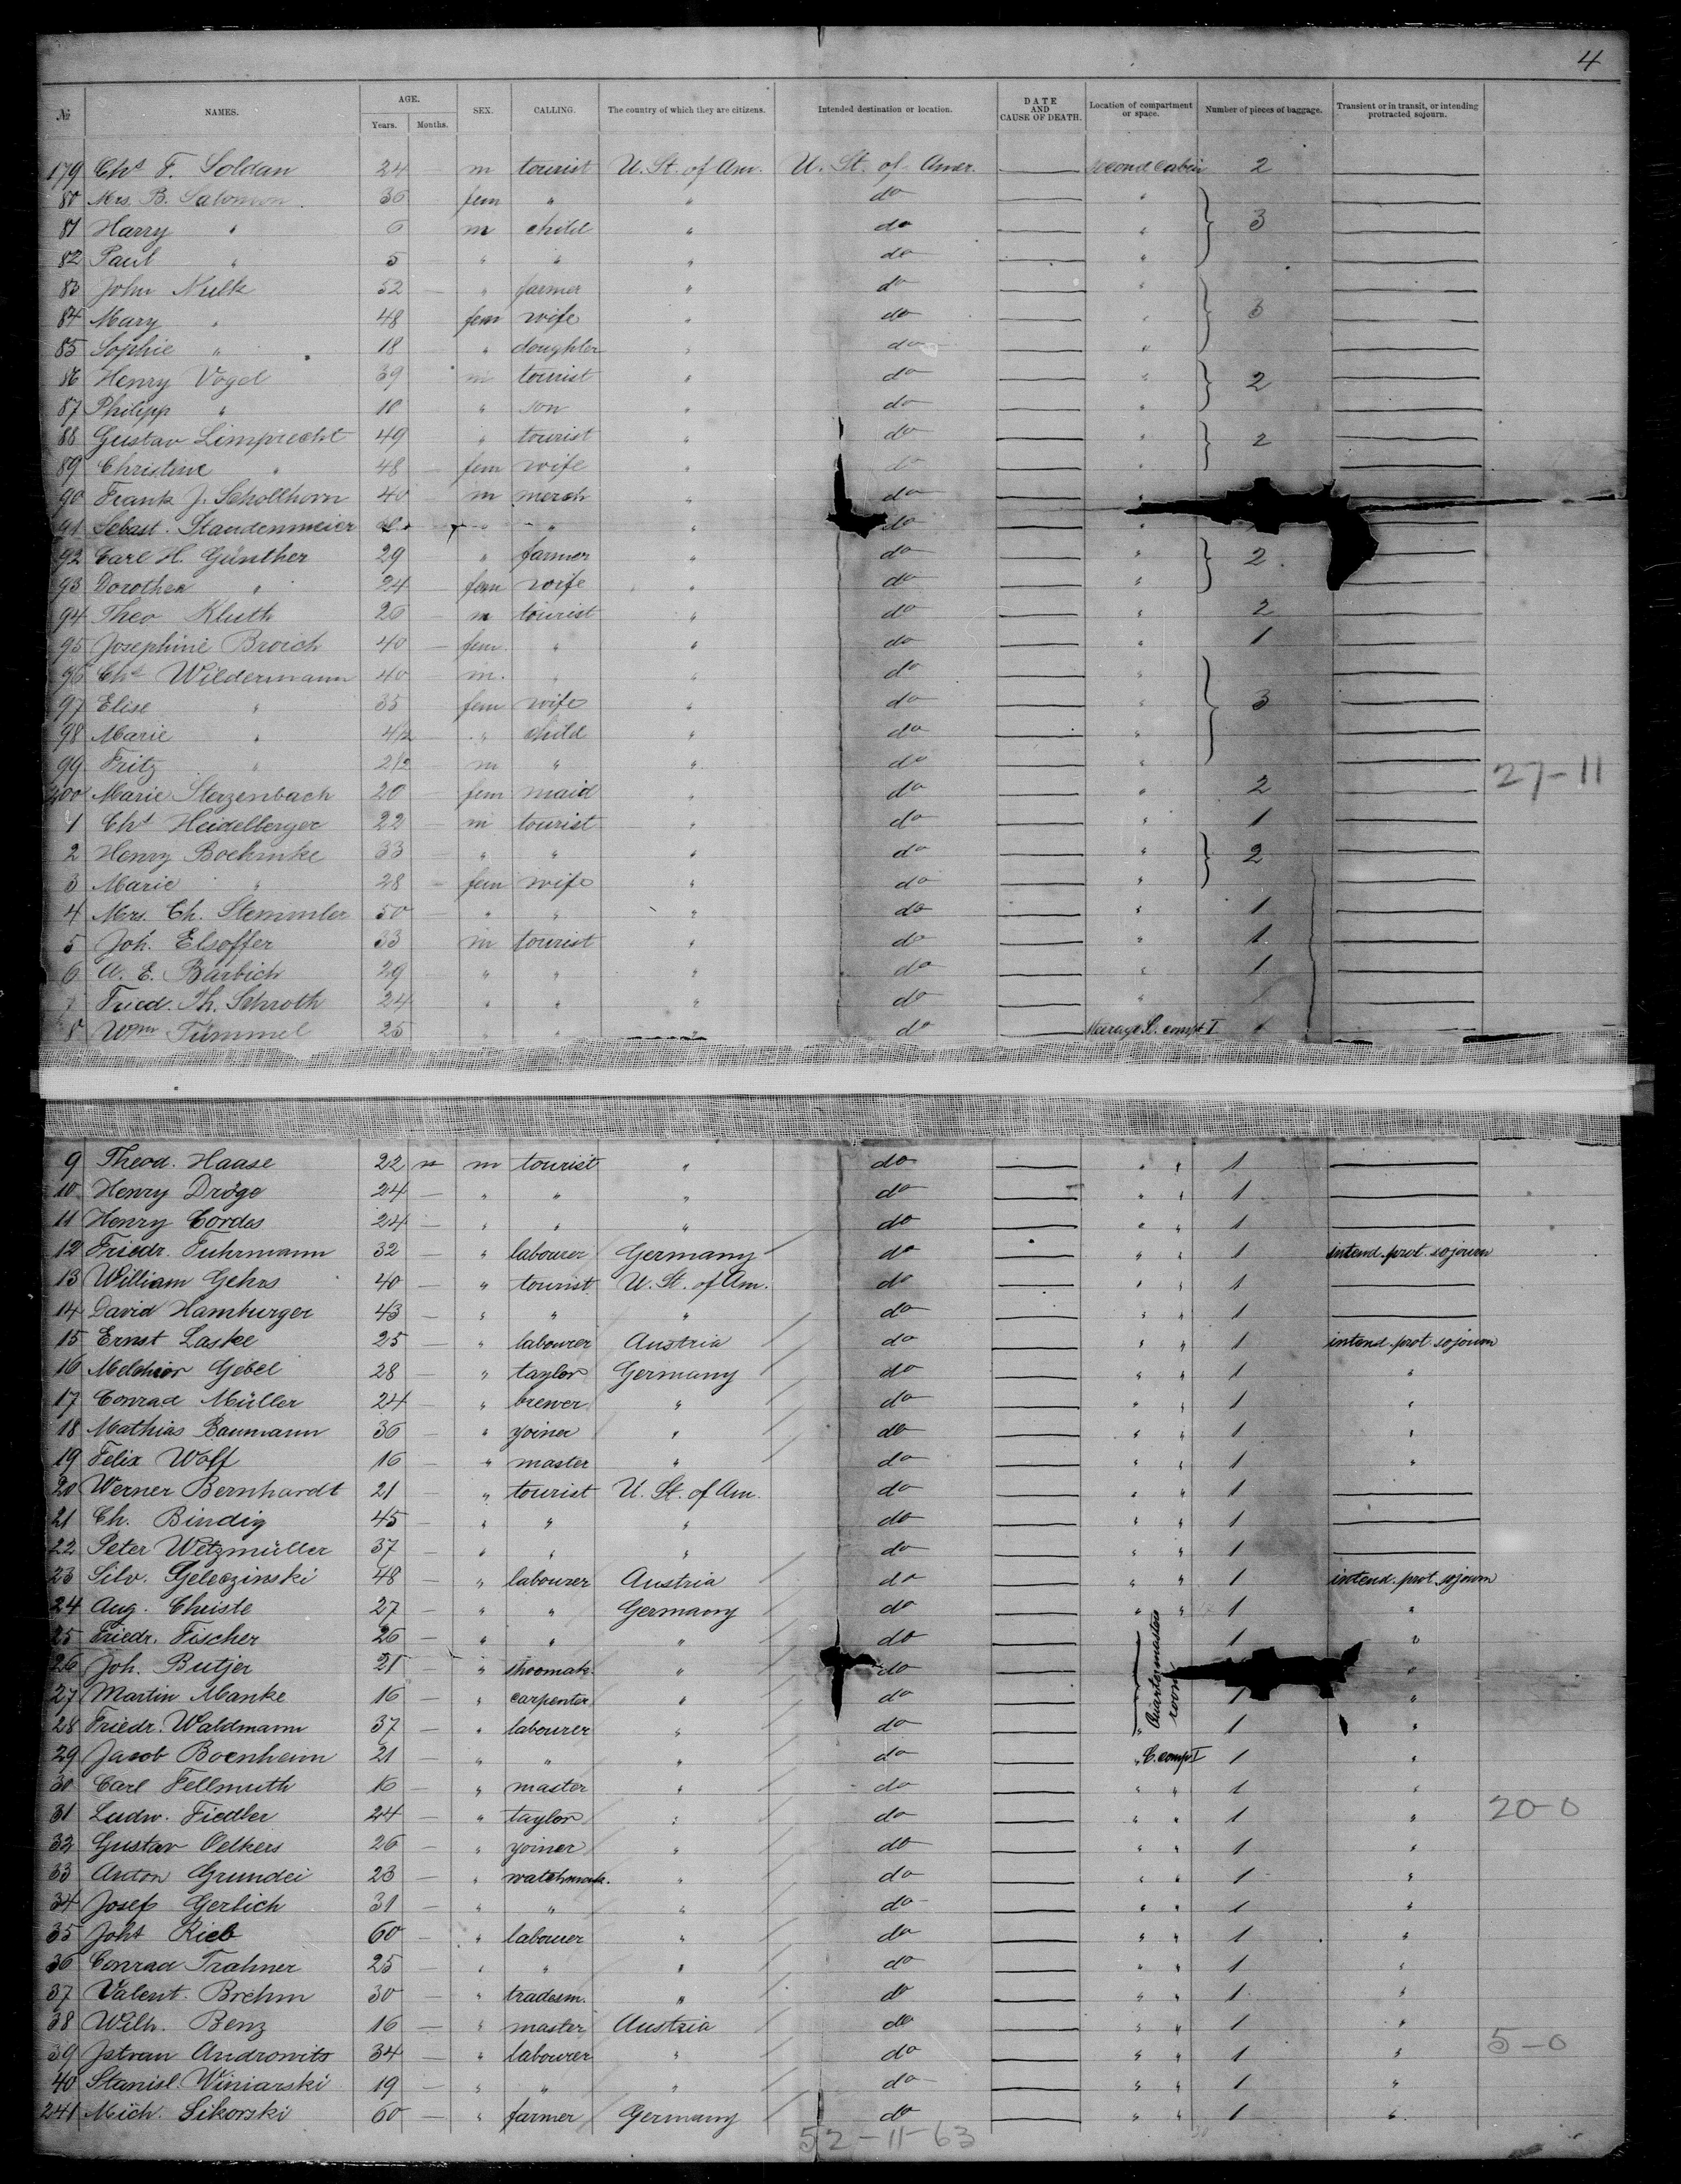 4
№ NAMES. AGE. Years. Months. SEX. CALLING. The country of which they are citizens. Intended destination or location. DATE AND CAUSE OF DEATH. Location of compartment or space. Number of pieces of baggage. Transient or in transit, or intending protracted sojourn.
179 Chs F. Soldan 24 m tourist U. St. of Am. U. St. of Amer. Second Cabin 2
80 Mrs. B. Salomon 36 fem " " do "
81 Harry " 6 m child " do " 3
82 Paul " 5 " " " do "
83 John Nulk 52 " farmer " do "
84 Mary " 48 fem wife " do " 3
85 Sophie " 18 " doughter " do "
86 Henry Vogel 39 m tourist " do " 2
87 Philipp " 18 " son " do "
88 Gustav Limprecht 49 " tourist " do " 2
89 Christine " 48 fem wife " do "
90 Frank J. Schollhorn 40 m merch " do "
91 Sebast. Staudenmeier " " do "
92 Carl H. Günther 29 " farmer " do " 2
93 Dorothea " 24 fem wife " do "
94 Theo Kluth 26 m tourist " do " 2
95 Josephine Broich 40 fem. " " do " 1
96 Chs Wildermann 40 m. " " do "
97 Elise " 35 fem wife " do " 3
98 Marie " 4/2 " child " do "
99 Fritz " 2/2 m " " do "
27-11
200 Marie Sterzenbach 20 fem maid " do " 2
1 Chs Heidelberger 22 m tourist " do " 1
2 Henry Boehmke 33 " " " do " 2
3 Marie " 28 fem wife " do "
4 Mrs. Ch. Stemmler 50 " " " do " 1
5 Joh. Elsoffer 33 m tourist " do " 1
6 A. E. Barbich 29 " " " do " 1
7 Fried. Th. Schroth 24 " " " do " 1
8 Wm Tümmel 25 " " " do Steerage S. compt I 1
9 Theod. Haase 22 m tourist " do " " 1
10 Henry Dröge 24 " " " do " " 1
11 Henry Cordes 24 " " " do " " 1
12 Friedr. Fuhrmann 32 " labourer Germany do " " 1 intend. prot. sojourn
13 William Gehrs 40 " tourist U. St. of Am. do " " 1
14 David Hamburger 43 " " " do " " 1
15 Ernst Laske 25 " labourer Austria do " " 1 intend. prot. sojourn
16 Melchior Gebel 28 " taylor Germany do " " 1 "
17 Conrad Müller 24 " brewer " do " " 1 "
18 Mathias Baumann 36 " yoiner " do " " 1 "
19 Felix Wolf 16 " master " do " " 1 "
20 Werner Bernhardt 21 " tourist U. St. of Am. do " " 1
21 Ch. Bindig 45 " " " do " " 1
22 Peter Wetzmüller 37 " " " do " " 1
23 Silv. Geleczinski 48 " labourer Austria do " " 1 intend. prot. sojourn
24 Aug. Christe 27 " " Germany do " " 1 "
25 Friedr. Fischer 26 " " " do Quartermasters room 1 "
26 Joh. Butjer 21 " shoomak. " do "
27 Martin Manke 16 " carpenter " do 1 "
28 Friedr. Waldmann 37 " labourer " do " 1 "
29 Jacob Boenheim 21 " " " do " C. comp I 1 "
30 Carl Fellmuth 16 " master " do " " 1 "
31 Ludw. Fiedler 24 " taylor " do " " 1 "
20-0
32 Gustav Oelkers 26 " yoiner " do " " 1 "
33 Anton Grundei 23 " watchmak. " do " " 1 "
34 Josef Gerlich 31 " " " do " " 1 "
35 Joht Rieb 60 " labourer " do " " 1 "
36 Conrad Trahner 25 " " " do " " 1 "
37 Valent. Brehm 30 " tradesm. " do " " 1 "
38 Wilh. Benz 16 " master Austria do " " 1 "
39 Jstvan Androwits 34 " labourer " do " " 1 "
5-0
40 Stanisl. Winiarski 19 " " " do " " 1 "
241 Mich. Sikorski 60 " farmer Germany do " " 1 "
52-11-63